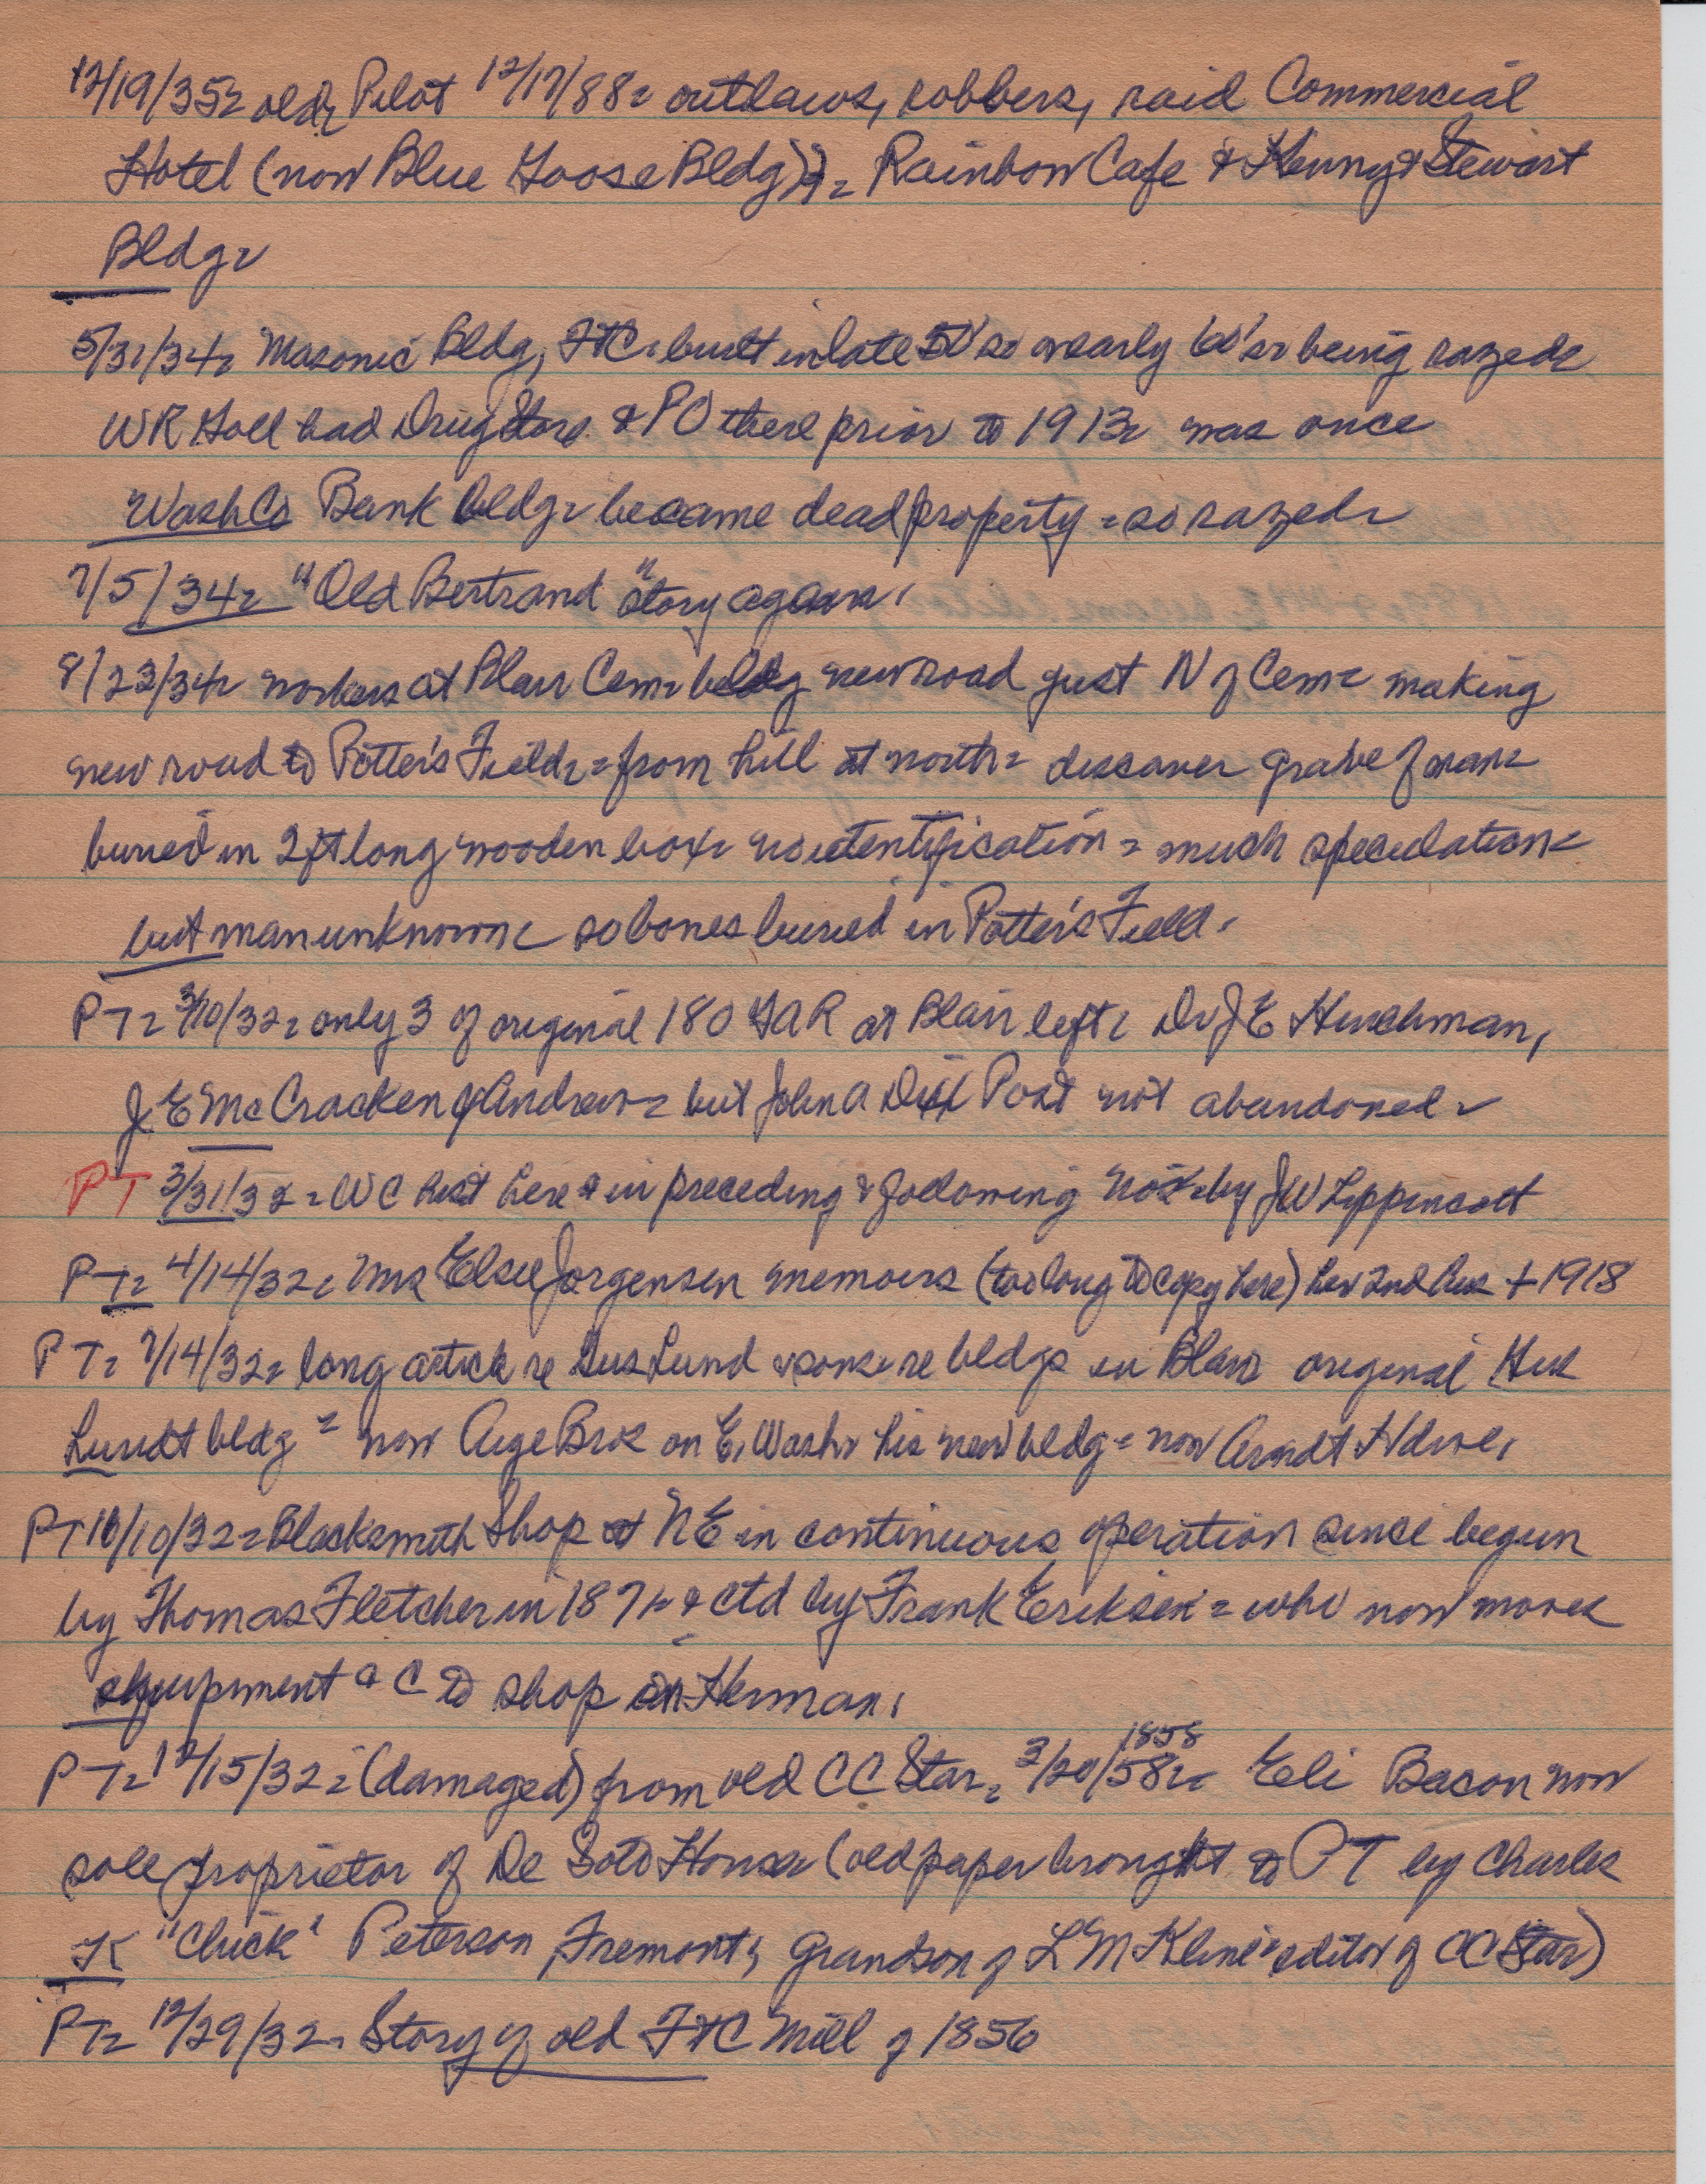 12/19/35= old Pilot 12/17/88= outlaws, robbers, raid Commercial
Hotel (now Blue Goose Bldg)= Rainbow Cafe & Kenny & Stewart
Bldg=
5/31/34= Masonic Bldg, FtC= built in late 50's or early 60's= being razed=
WR Hall had Drug Store & PO there prior to 1913= was once
WashCo Bank bldg= became dead property = so razed=
7/5/34= "Old Bertrand" story again.
8/23/34= workers at Blair Cem= bldg new road just N of Cem= making
new road to Potter's Field= from hill at north= discover grave of man=
buried in 2ft long wooden box= no identification = much speculation=
but man unknown= so bones buried in Potter's Field.
PT= 3/10/32= only 3 of original 180 GAR at Blair left= Dr JE Hinchman,
JE McCracken & Andrew= but John A Dix Post not abandoned=
PT 3/31/32= WC hist here & in preceding & following nos= by JW Lippincott
PT= 4/14/32= Mrs Elsie Jorgensen memoirs (too long to copy here) her 2nd hus + 1918
PT= 7/14/32= long article re Gus Lund & sons= re bldgs in Blair original
Lundt bldg = now Aye Bros on E. Wash= his new bldg = now Arndt Hdwe.
PT 10/10/32= Blacksmith Shop at NE in continuous operation since begun
by Thomas Fletcher in 1871= & ctd by Frank Eriksen = who now moves
equipment &C to shop in Herman.
PT= 12/15/32= (damaged) from old CC Star= 3/20/58= 1858 Eli Bacon now
sole proprietor of De Soto House (old paper brought to PT by Charles
K "Chick" Peterson, Fremont, Grandson of L M Kline= editor of CC Star)
PT= 12/29/32= Story of old FtC Mill of 1856